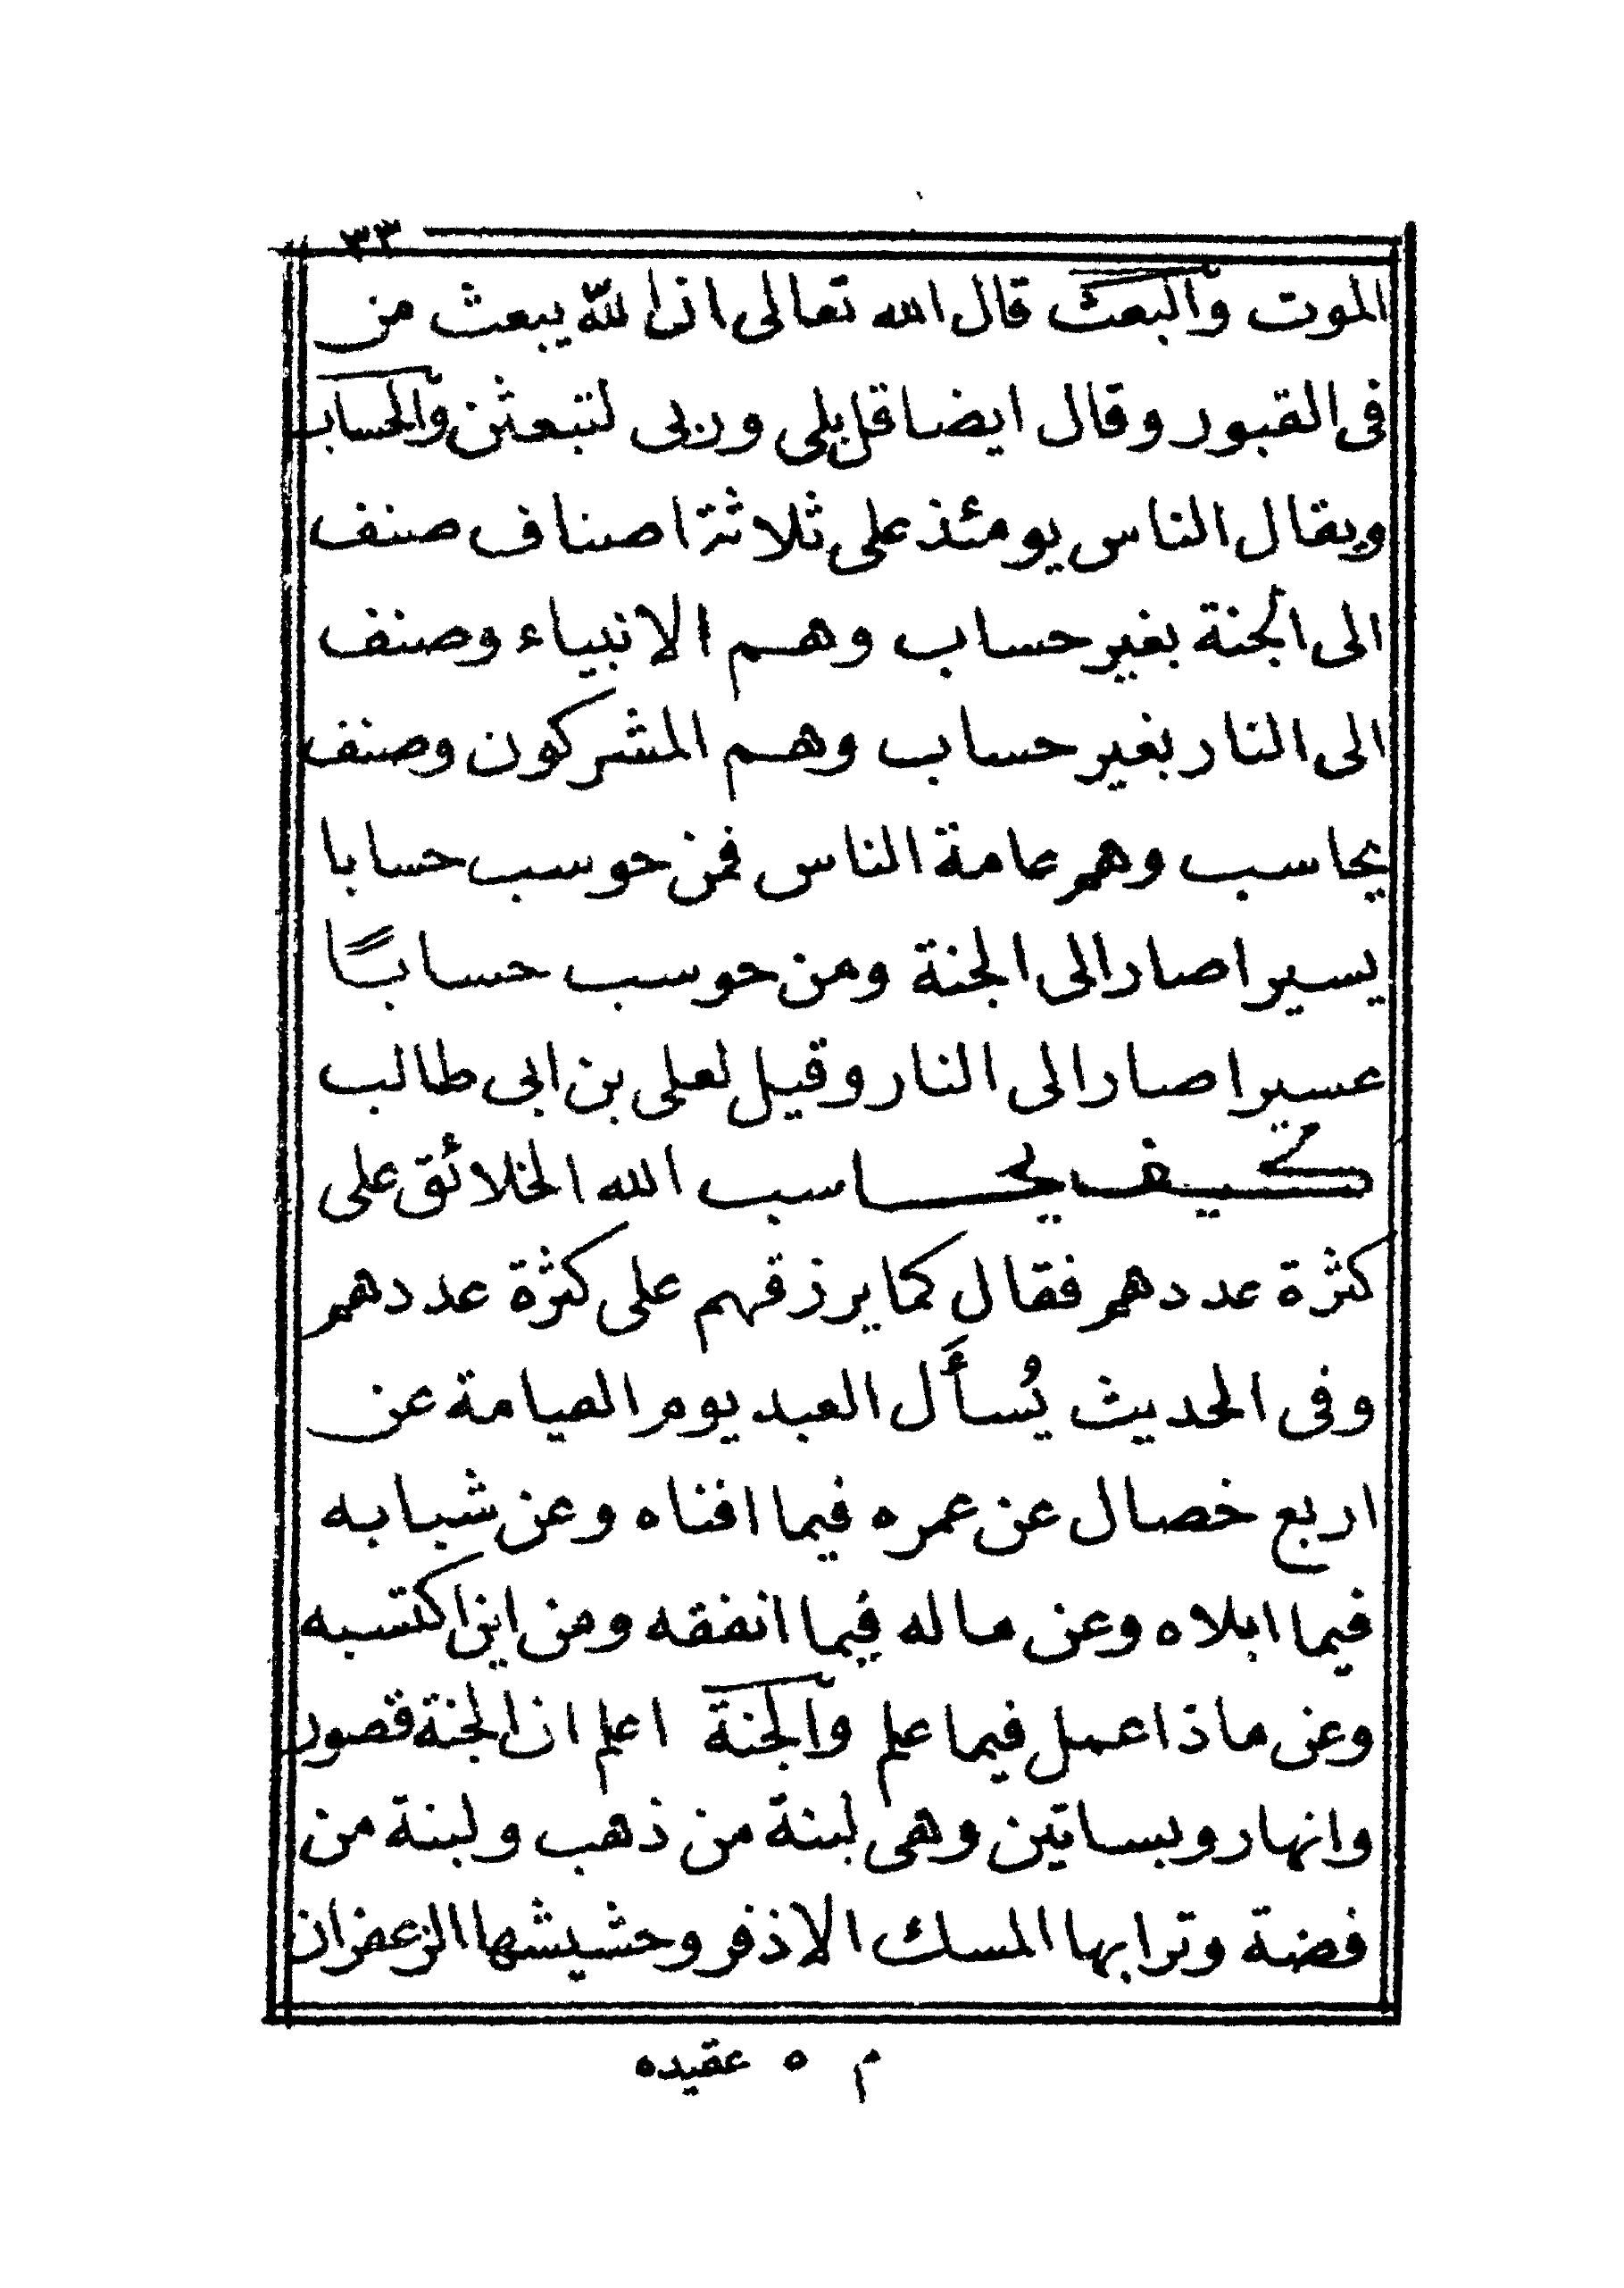 ٣٣
الموت والبعث قال الله تعالى ان الله يبعث من
فى القبور وقال ايضا قل بلى وربى لتبعثن والحساب
ويقال الناس يومئذ على ثلاثة اصناف صنف
الى الجنة بغير حساب وهم الانبياء وصنف
الى النار بغير حساب وهم المشركون وصنف
يحاسب وهم عامة الناس فمن حوسب حسابا
يسيرا صار الى الجنة ومن حوسب حسابًا
عسيرا صار الى النار وقيل لعلى بن ابى طالب
كيف يحاسب الله الخلائق على
كثرة عددهم فقال كما يرزقهم على كثرة عددهم
وفى الحديث يُسأَل العبد يوم الصيامة عن
اربع خصال عن عمره فيما افناه وعن شبابه
فيما ابلاه وعن ماله فيما انفقه ومن اين اكتسبه
وعن ماذا عمل فيما علم والجنة اعلم ان الجنة قصور
وانهار وبساتين وهى لبنة من ذهب ولبنة من
فضة وترابها المسك الاذفر وحشيشها الزعفران
م ٥ عقيده